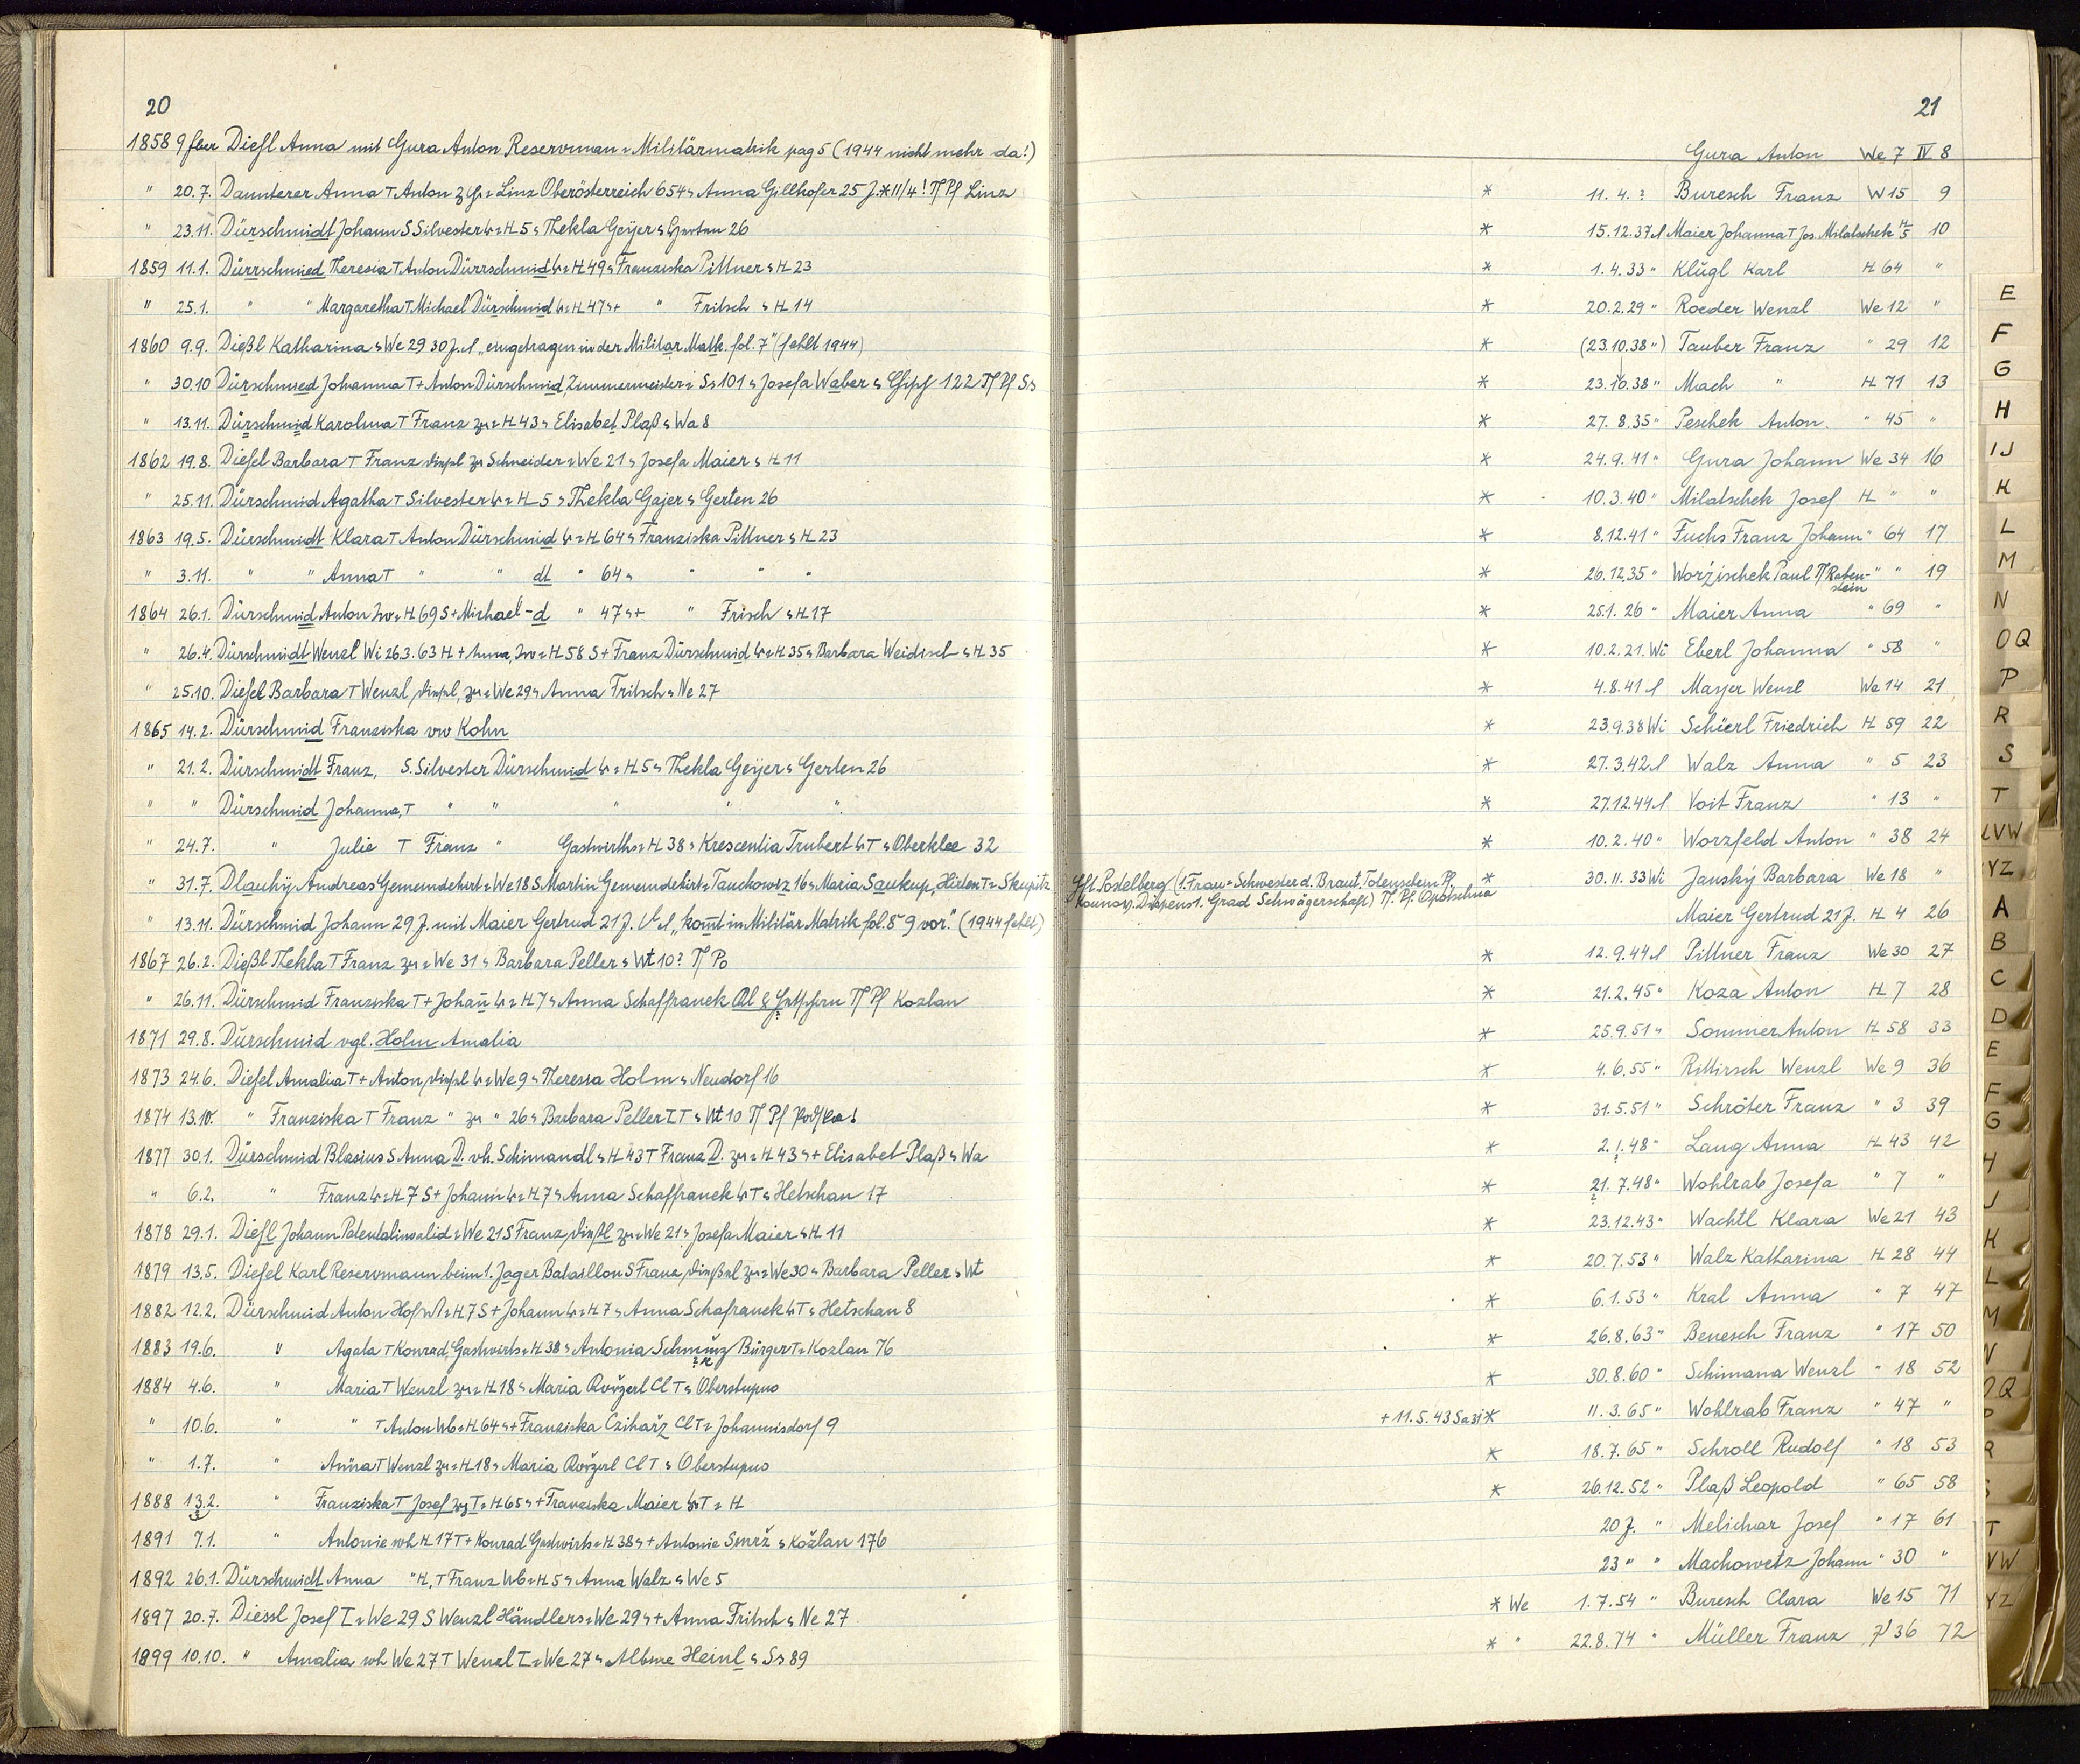 20
1858 9 feber Diesl Anna mit Gura Anton Reservman Militärmatrik pag 5 (1944 nicht mehr da!)
" 20.7. Dannterer Anna T Anton Linz Oberösterreich 654 Anna Gillhofer 25 J. *11/4! Pf Linz
" 23.11. Dürschmidt Johann S Silvester H 5 Thekla Geyer Gerten 26
1859 11.1. Dürrschmied Theresia T Anton Dürrschmid H 49 Franziska Pittner H 23
" 25.1. " " Margaretha T Michael Dürschmid H 47 + " Fritsch H 14
1860 9.9. Dießl Katharina We 29 30 J. "eingetragen in der Militar Matk. fol. 7" (fehlt 1944)
" 30.10 Dürschmied Johanna T + Anton Dürschmid, Zimmermeister Ss 101 Josefa Waber 122 Pf Ss
" 13.11. Dürschmid Karolina T Franz H 43 Elisabet Plaß Wa 8
1862 19.8. Diesel Barbara T Franz Schneider We 21 Josefa Maier H 11
" 25.11. Dürschmid Agatha T Silvester H 5 Thekla Gajer Gerten 26
1863 19.5. Dürschmidt Klara T Anton Dürschmid H 64 Franziska Pittner H 23
" 3.11. " " Anna T " " dt " 64 " " "
1864 26.1. Dürschmid Anton H 69 S + Michael -d " 47 + " Frisch H 17
" 26.4. Dürschmidt Wenzl Wi 26.3.63 H + Anna, H 58 S + Franz Dürschmid H 35 Barbara Weidisch H 35
" 25.10. Diesel Barbara T Wenzl, We 29 Anna Fritsch Ne 27
1865 14.2. Dürschmid Franziska vw Kohn
" 21.2. Dürschmidt Franz, S. Silvester Dürschmid H 5 Thekla Geyer Gerten 26
" " Dürschmid Johanna, T " " " " "
" 24.7. " Julie T Franz " Gastwirths H 38 Krescentia Trubert T Oberklee 32
" 31.7. Dlauhý Andreas Gemeindehirt We 18 S Martin Gemeindehirt Tauchowiz 16 Maria Saukup, Hirten T Skupitz
" 13.11. Dürschmid Johann 29 J. mit Maier Gertrud 21 J. "komt in Militär Matrik fol. 8 9 vor." (1944 fehlt)
1867 26.2. Dießl Thekla T Franz We 31 Barbara Peller Wt 10? Po
" 26.11. Dürschmid Franziska T + Johan H 7 Anna Schaffranek Pf Kozlan
1871 29.8. Dürschmid vgl. Holm Amalia
1873 24.6. Diesel Amalia T + Anton, We 9 Theresia Holm Neudorf 16
1874 13.10. " Franziska T Franz " " 26 Barbara Peller Wt 10 Pf
1877 30.1. Dürschmid Blasius S Anna D. vh. Schimandl H 43 T Franz D. H 43 + Elisabet Plaß Wa
" 6.2. " Franz H 7 S + Johann H 7 Anna Schaffranek T Hetschau 17
1878 29.1. Diesl Johann Patentalinvalid We 21 S Franz We 21 Josefa Maier H 11
1879 13.5. Diesel Karl Reservmann beim 1. Jager Bataillon S Franz We 30 Barbara Peller Wt
1882 12.2. Dürschmid Anton H 7 S + Johann H 7 Anna Schafranek T Hetschau 8
1883 19.6. " Agata T Konrad, Gastwirts H 38 Antonia Bürger T Kozlan 76
1884 4.6. " Maria T Wenzl H 18 Maria Rožerl Cl T Oberstupno
" 10.6. " " T Anton Wb H 64 + Franziska Czihařz Cl T Johannisdorf 9
" 1.7. " Anna T Wenzl H 18 Maria Cl T Oberstupno
1888 13.2. " Franziska T Josef H 65 + Franziska Maier T H
1891 7.1. " Antonie wh H 17 T + Konrad Gastwirts H 38 + Antonie Smrž Kožlan 176
1892 26.1. Dürschmidt Anna " H, T Franz Wb H 5 Anna Walz We 5
1897 20.7. Diessl Josef We 29 S Wenzl Händlers We 29 + Anna Fritsch Ne 27
1899 10.10. " Amalia wh We 27 T Wenzl We 27 Albine Heinl Ss 89
21
Gura Anton We 7 IV 8
* 11.4.? Buresch Franz W 15 9
* 15.12.37 l Maier Johanna T Jos. Milatschek H 5 10
* 1.4.33 " Klügl Karl H 64 "
* 20.2.29 " Roeder Wenzl We 12 "
* (23.10.38 ") Tauber Franz " 29 12
* 23.10.38 " Mach " H 71 13
* 27.8.35 " Peschek Anton. " 45 "
* 24.9.41 " Gura Johann We 34 16
* 10.3.40 " Milatschek Josef H " "
* 8.12.41 " Fuchs Franz Johann " 64 17
* 26.12.35 " Woržischek Paul Rabenstein " " 19
* 25.1.26 " Maier Anna " 69 "
* 10.2.21. Wi Eberl Johanna " 58 "
* 4.8.41 l Mayer Wenzl We 14 21
* 23.9.38 Wi Schierl Friedrich H 59 22
* 27.3.42 l Walz Anna " 5 23
* 27.12.44 l Voit Franz " 13 "
* 10.2.40 " Worzfeld Anton " 38 24
Postelberg (1. Frau = Schwester d. Braut, Totenschein Pf. * 30.11.33 Wi Janský Barbara We 18 "
Kounov, Dispens 1. Grad Schwägerschaft) Pf. Opotschna
Maier Gertrud 21 J. H 4 26
* 12.9.44 l Pittner Franz We 30 27
* 21.2.45 " Koza Anton H 7 28
* 25.9.51 " Sommer Anton H 58 33
* 4.6.55 " Rittirsch Wenzl We 9 36
* 31.5.51 " Schröter Franz " 3 39
* 2.1.48 " Lang Anna H 43 42
* 21.7.48 " Wohlrab Josefa " 7 "
* 23.12.43 " Wachtl Klara We 21 43
* 20.7.53 " Walz Katharina H 28 44
* 6.1.53 " Kral Anna " 7 47
* 26.8.63 " Benesch Franz " 17 50
* 30.8.60 " Schimana Wenzl " 18 52
+ 11.5.43 Saaz * 11.3.65 " Wohlrab Franz " 47 "
* 18.7.65 " Schroll Rudolf " 18 53
* 26.12.52 " Plaß Leopold " 65 58
20 J. " Melichar Josef " 17 61
23 " " Machowetz Johann " 30 "
* We 1.7.54 " Buresch Clara We 15 71
* " 22.8.74 " Müller Franz 36 72
E
F
G
H
IJ
K
L
M
N
OQ
P
R
S
T
UVW
YZ
A
B
C
D
E
F
G
H
J
K
L
M
N
OQ
P
R
S
T
VW
YZ